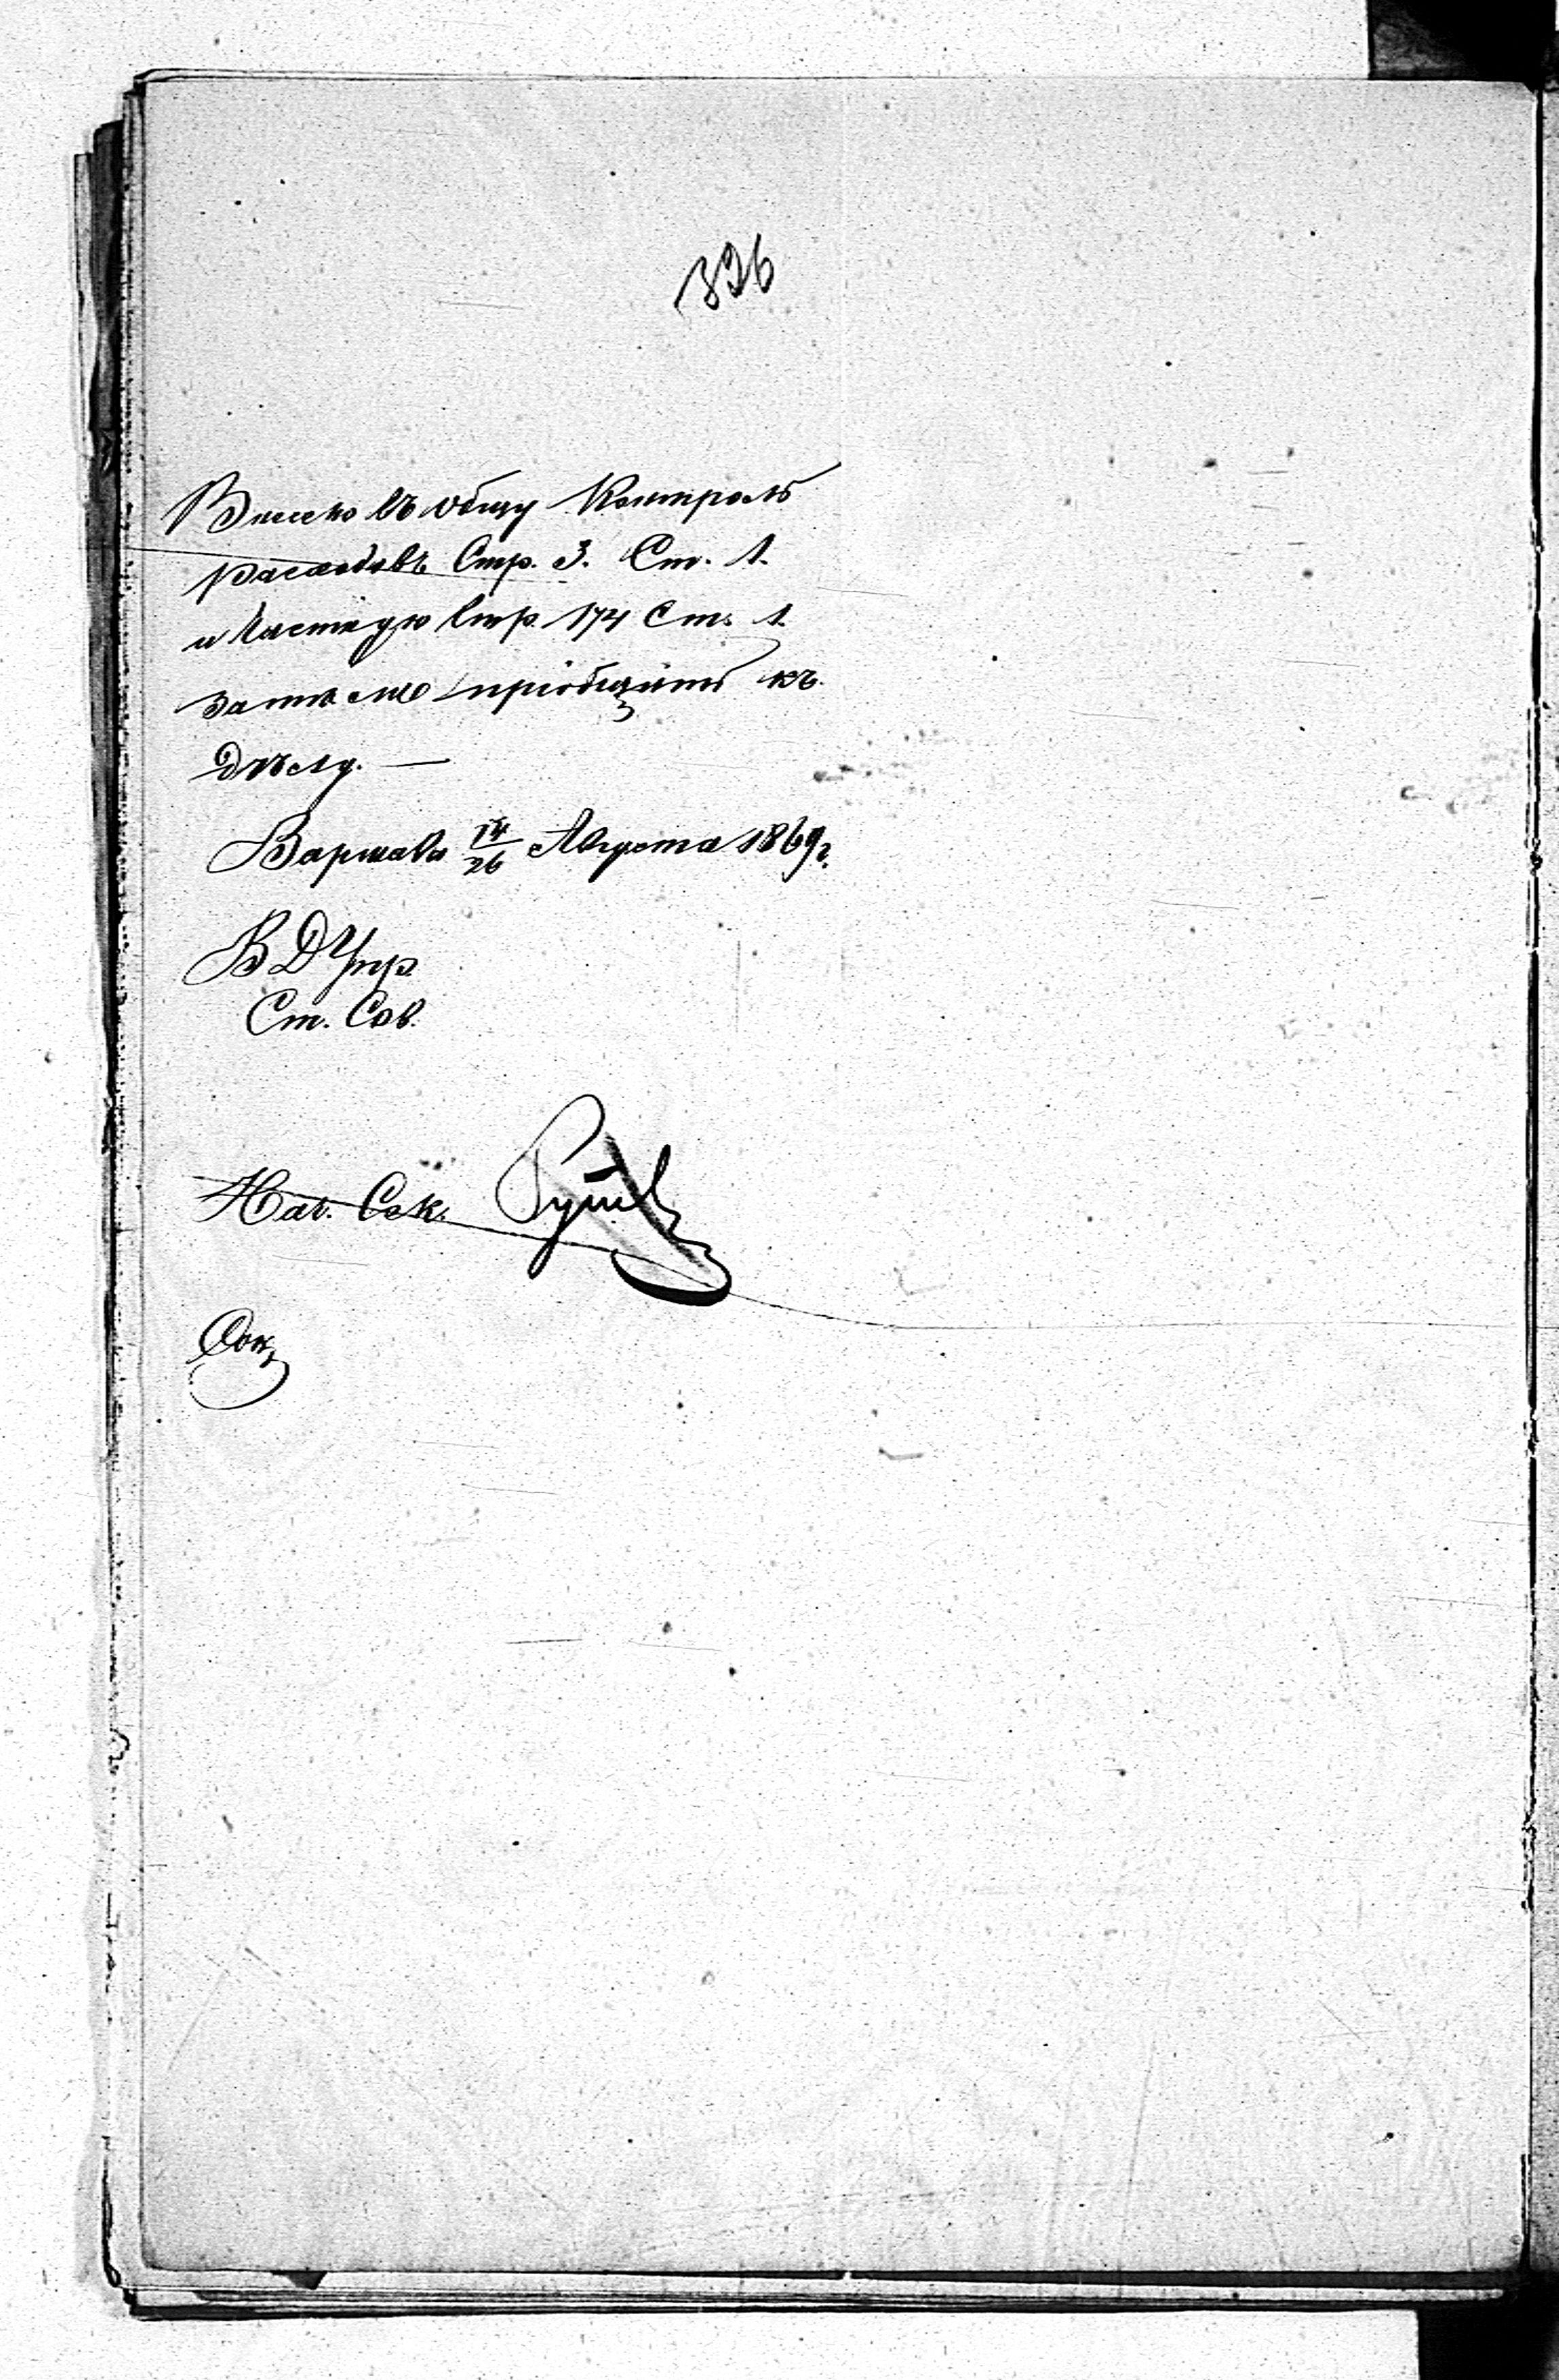 326
Внесено въ общу Контроль
расходовъ Стр. 3. Ст. 1.
и частную Стр. 174 Ст. 1.
затѣмъ пріобщить къ
дѣлу. —
Варшава 14/26 Августа 1869 г.
В Д Упр.
Ст. Сов.
Нач. Сек.
Сек.